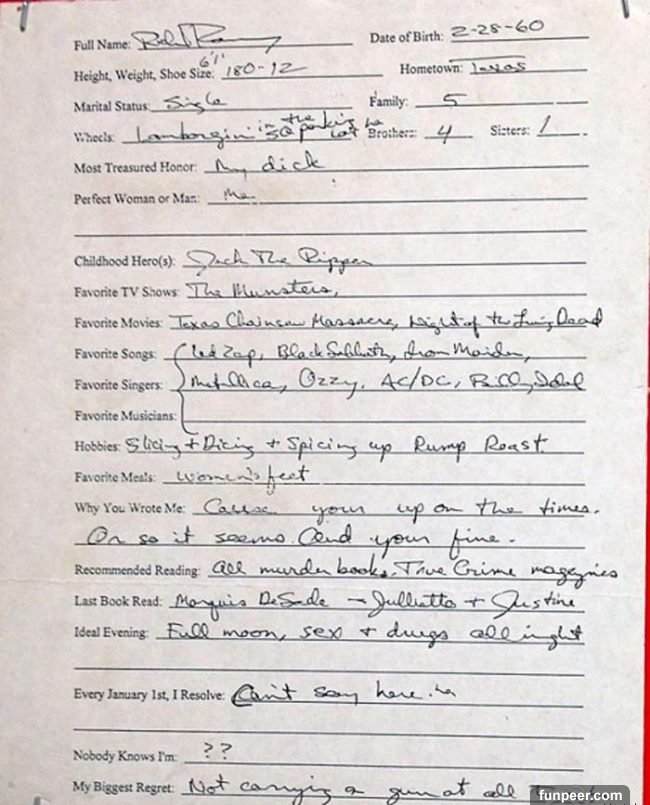 Full Name: Date of Birth: 2-28-60
Height, Weight, Shoe Size: 6'1" 180-12 Hometown: Texas
Marital Status: Single Family: 5
Wheels: Lamborgini in the SQ parking lot ha Brothers: 4 Sisters: 1
Most Treasured Honor: My dick
Perfect Woman or Man: Me.
Childhood Hero(s): Jack The Ripper
Favorite TV Shows: The Munsters,
Favorite Movies: Texas Chainsaw Massacre, Night of the Living Dead
Favorite Songs: Led Zep, Black Sabbath, Iron Maiden,
Favorite Singers: Metallica, Ozzy, AC/DC, Billy Idol
Favorite Musicians:
Hobbies: Slicing + Dicing + Spicing up Rump Roast.
Favorite Meals: Women's feet
Why You Wrote Me: Cause your up on the times.
Or so it seems. And your fine.
Recommended Reading: All murder books. True Crime magezines
Last Book Read: Marquis DeSade - Julliette + Justine
Ideal Evening: Full moon, sex + drugs all night
Every January 1st, I Resolve: Can't say here. ha
Nobody Knows I'm: ??
My Biggest Regret: Not carrying a gun at all
funpeer.com